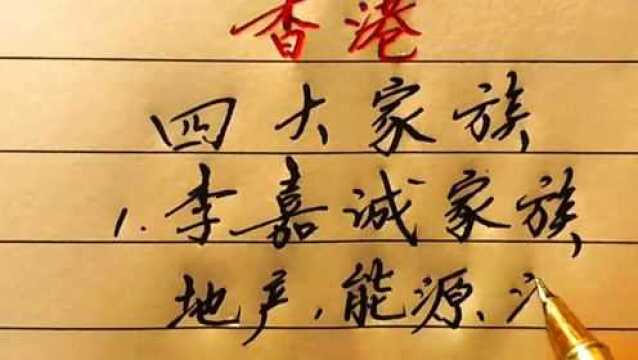 香港
四大家族
1.李嘉诚家族,
地产,能源、